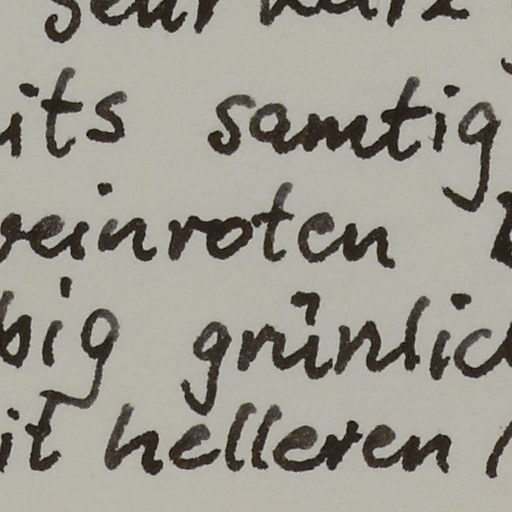 its samtig
weinroten
big grünlich
it helleren